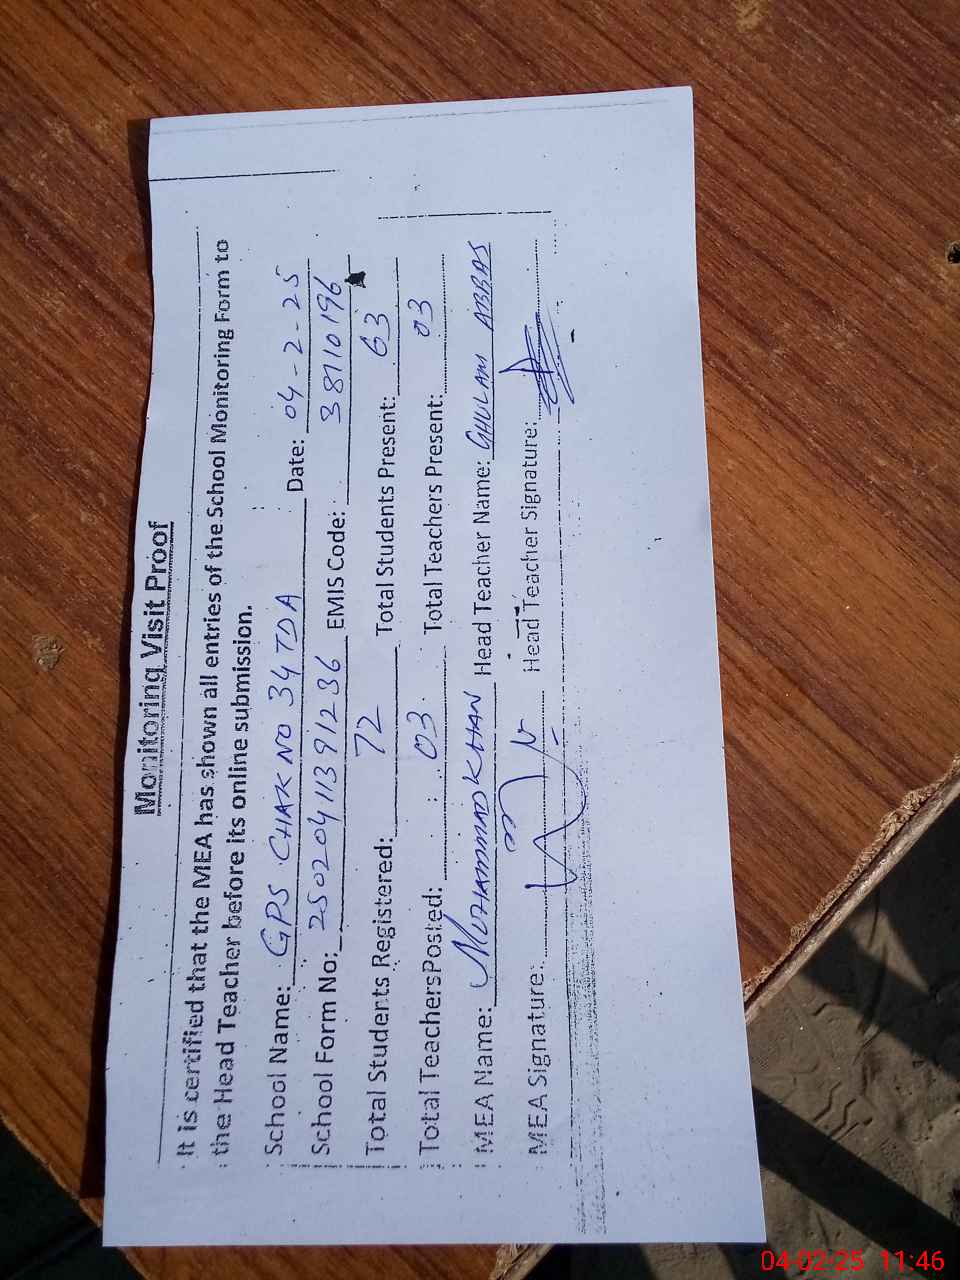 Monitoring Visit Proof
It is certified that the MEA has shown all entries of the School Monitoring Form to
the Head Teacher before its online submission.
School Name: GPS CHAK NO 34 TDA Date: 04-2-25
School Form No: 25020411391236 EMIS Code: 38110196
Total Students Registered: 72 Total Students Present: 63
Total Teachers Posted: 03 Total Teachers Present: 03
MEA Name: MUHAMMAD KHAN Head Teacher Name: GHULAM ABBAS
MEA Signature: Head Teacher Signature:
04-02-25 11:46